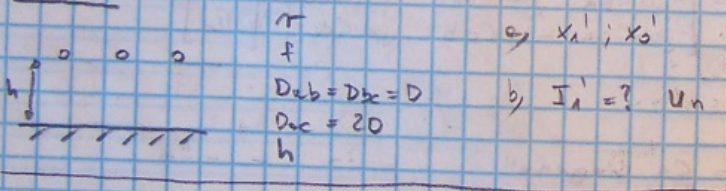 r
f
Dab = Dbc = D
Dac = 2D
h
h
a) x₁' ; x₀'
b) I₁' = ? Un